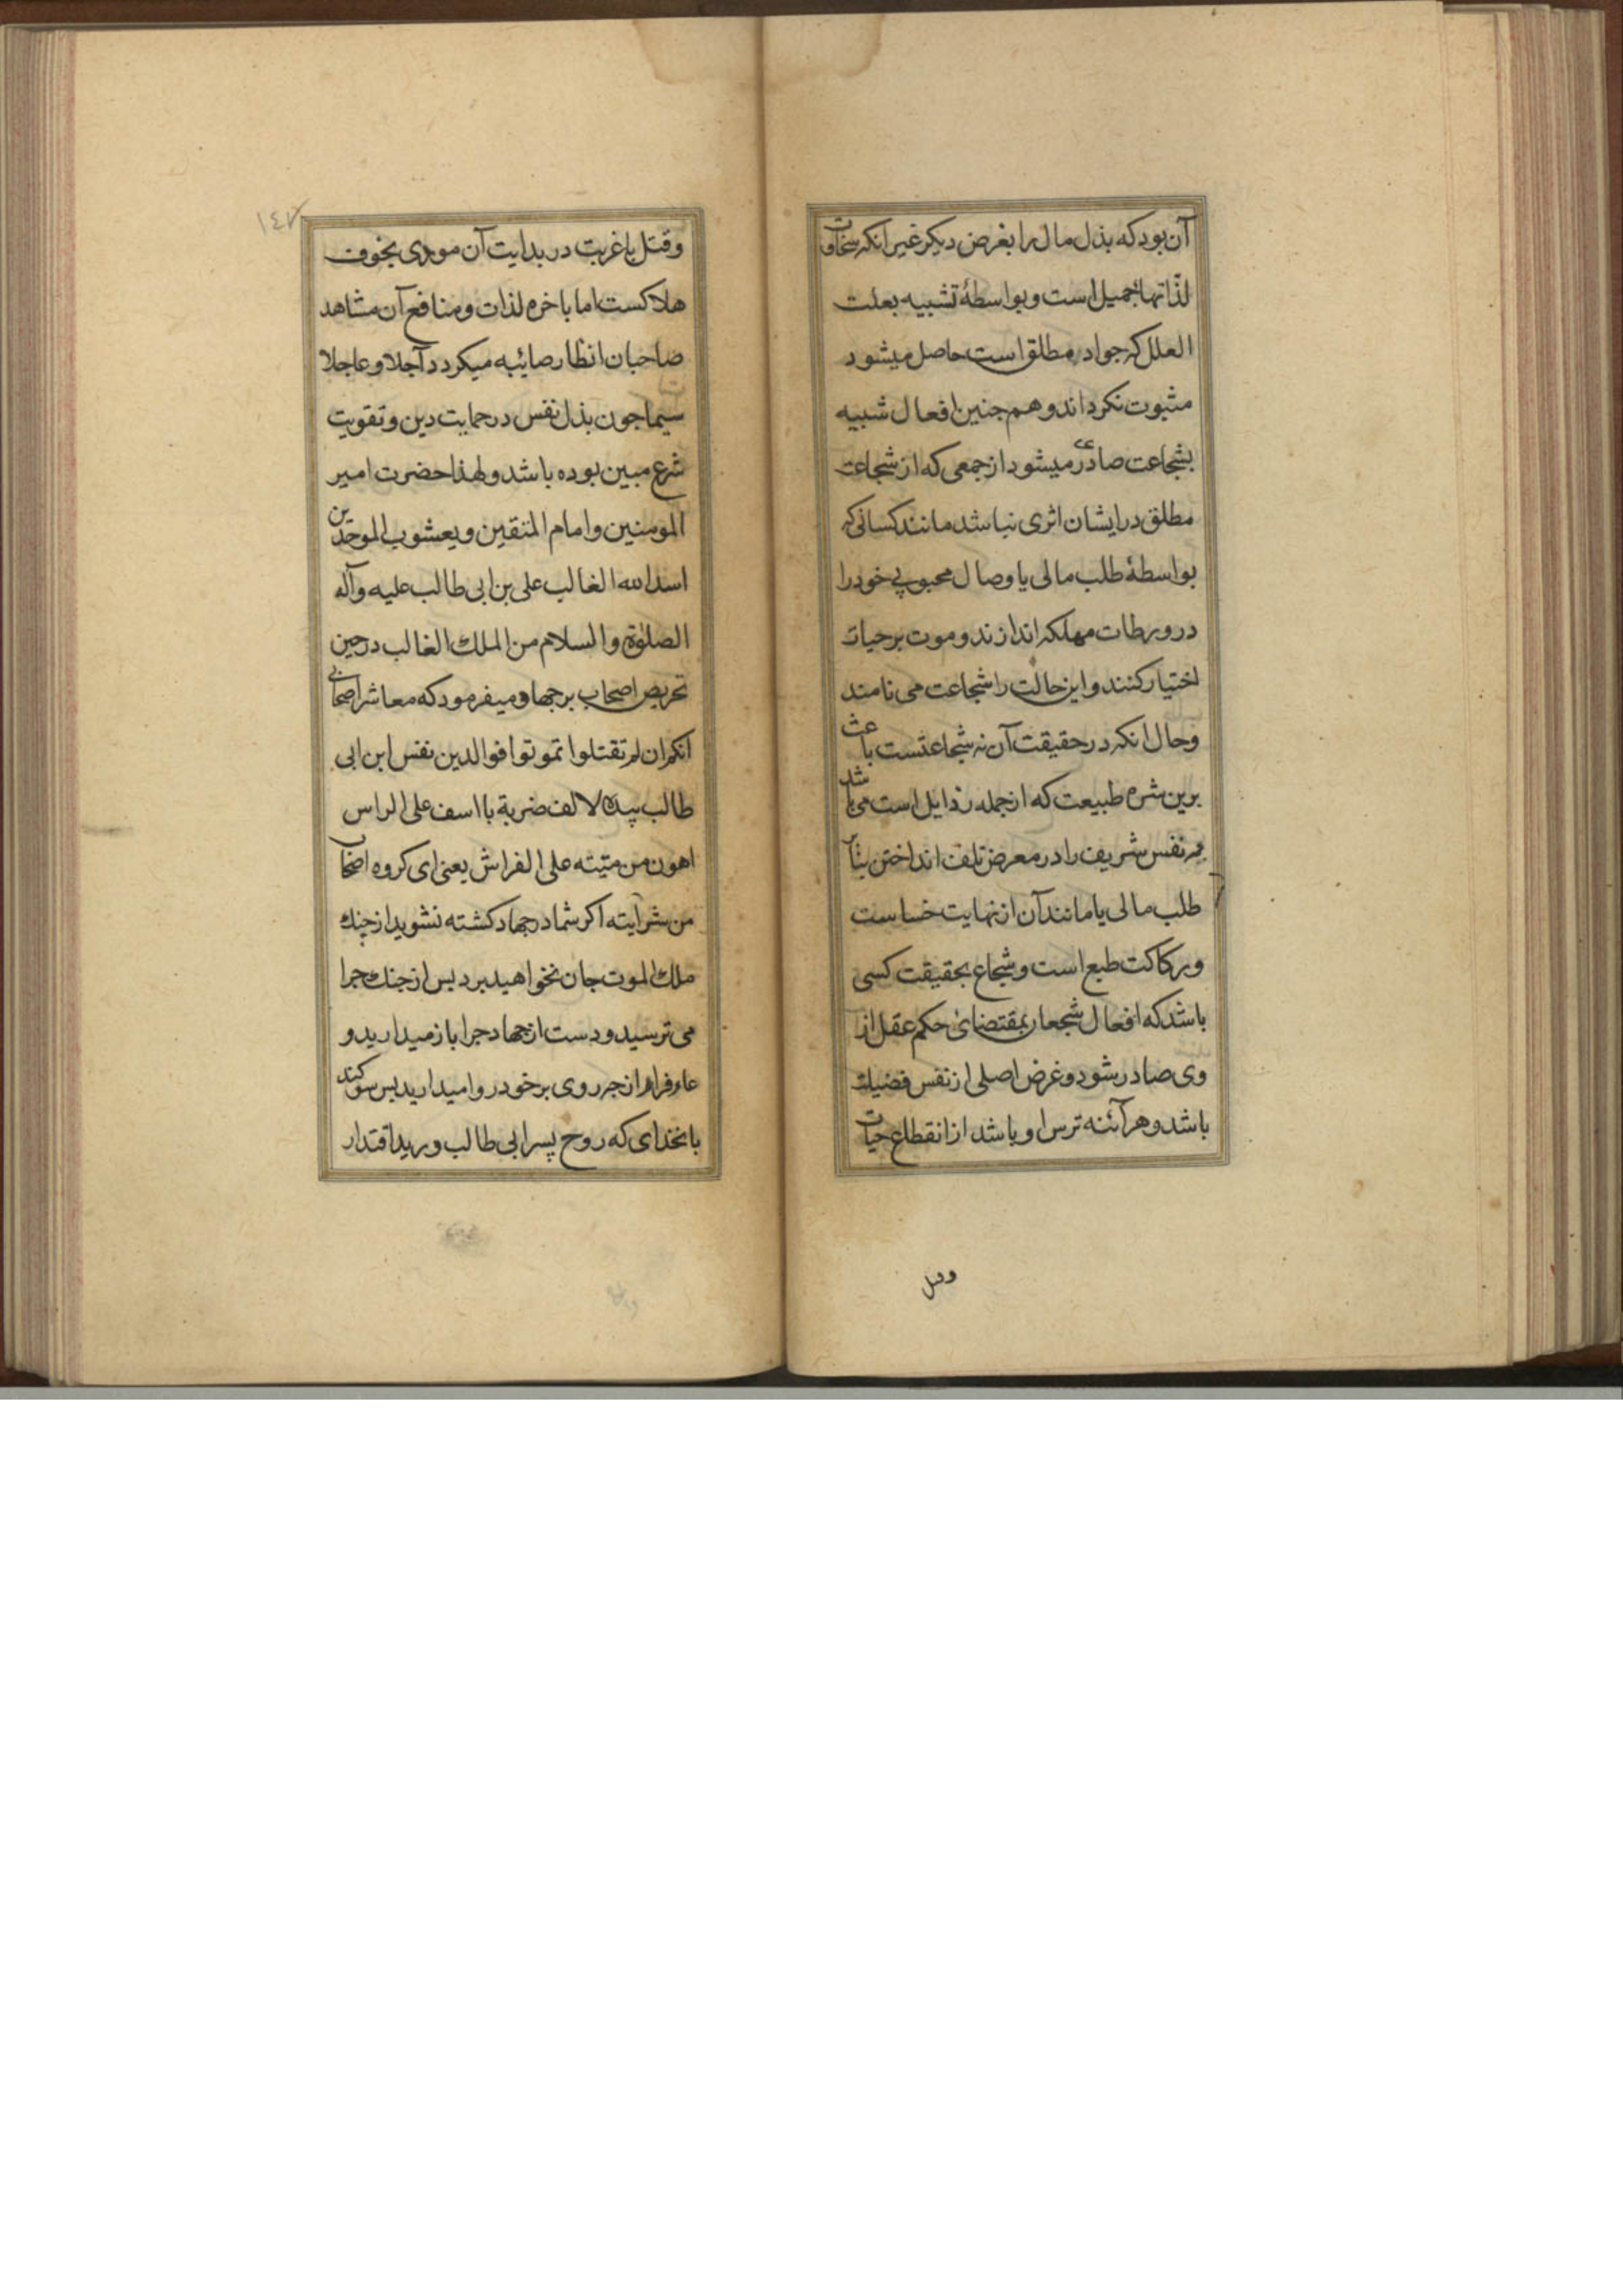 آن بود که بذل مال را بغرض دیکر غیر انکه سخاوت
لذّاتها جمیل است و بواسطهٔ تشبیه بعلت
العلل که جواد مطلق است حاصل میشود
مثبوت نکرداند و هم جنین افعال شبیه
بشجاعت صادر میشود از جمعی که از شجاعت
مطلق در ایشان اثری نباشد مانند کسانی که
بواسطهٔ طلب مالی یا وصال محبوبی خود را
در ورطات مهلکه اندازند و موت بر حیات
اختیار کنند و این حالت را شجاعت می نامند
و حال انکه در حقیقت آن نه شجاعتست باعث
برین شره طبیعت که از جمله رذایل است می باشد
نفس شریف را در معرض تلف انداختن بنابر
طلب مالی یا مانند آن از نهایت خساست
و رکاکت طبع است و شجاع بحقیقت کسی
باشد که افعال شجعان بمقتضای حکم عقل از
وی صادر شود و غرض اصلی از نفس فضیلت
باشد و هر آئنه ترس او باشد از انقطاع حیات
وقتل
١٤٧
و قتل یا غربت در بدایت آن مودی بخوف
هلاکست اما باخره لذات و منافع آن مشاهد
صاحبان انظار صائبه میکردد آجلا و عاجلا
سیما جون بذل نفس در حمایت دین و تقویت
شرع مبین بوده باشد و لهذا حضرت امیر
المومنین و امام المتقین و یعسوب الموحدین
اسد الله الغالب علی بن ابی طالب علیه و آله
الصلوة والسلام من الملك الغالب در حین
تحریص اصحاب بر جهاد میفرمود که معاشر اصحابی
انکم ان لم تقتلوا تموتوا فوالدین نفس ابن ابی
طالب بیده لالف ضربة باا سف علی الراس
اهون من میتته علی الفراش یعنی ای کروه اصحاب
من شرایته اکر شما در جهاد کشته نشوید از جنك
ملك الموت جان نخواهید برد بس از جنك جرا
می ترسید و دست از جهاد جرا باز میدارید و
عار فرار از جه روی بر خود روا میدارید بس سوکند
بانخدای که روح پسر ابی طالب ورید اقتدار